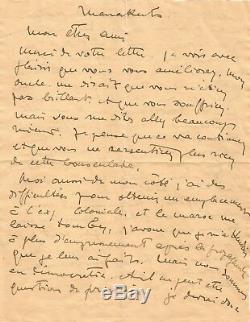 Marrakech
mon cher ami
merci de votre lettre. je vois avec
plaisir que vous vous améliorez, mon
oncle me disait que vous n'étiez
pas brillant et que vous souffriez,
mais vous me dites aller beaucoup
mieux. Je pense que ça va continuer
et que vous ne ressentirez plus rien
de cette bousculade.
Moi aussi de mon côté j'ai des
difficultés pour obtenir un emplacement
à l'exp. Coloniale, et le maroc me
laisse tomber, j'avoue que je
à plus d'empressement après la propagande
que je leur ai faite. mais nous sommes
en démocratie, et il ne peut être
question de je serai donc